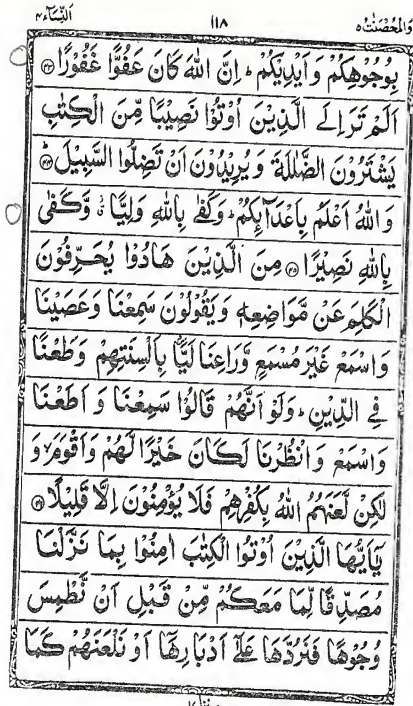 والمحصنت ۵ ۱۱۸ النسآء ۴
بِوُجُوْهِكُمْ وَاَيْدِيْكُمْ ؕ اِنَّ اللّٰهَ كَانَ عَفُوًّا غَفُوْرًا ۴۳
اَلَمْ تَرَ اِلَى الَّذِيْنَ اُوْتُوْا نَصِيْبًا مِّنَ الْكِتٰبِ
يَشْتَرُوْنَ الضَّلٰلَةَ وَيُرِيْدُوْنَ اَنْ تَضِلُّوا السَّبِيْلَ ؕ ۴۴
وَاللّٰهُ اَعْلَمُ بِاَعْدَآئِكُمْ ؕ وَكَفٰى بِاللّٰهِ وَلِيًّا ۫ۙ وَّكَفٰى
بِاللّٰهِ نَصِيْرًا ۴۵ مِنَ الَّذِيْنَ هَادُوْا يُحَرِّفُوْنَ
الْكَلِمَ عَنْ مَّوَاضِعِهٖ وَيَقُوْلُوْنَ سَمِعْنَا وَعَصَيْنَا
وَاسْمَعْ غَيْرَ مُسْمَعٍ وَّرَاعِنَا لَيًّۢا بِاَلْسِنَتِهِمْ وَطَعْنًا
فِي الدِّيْنِ ؕ وَلَوْ اَنَّهُمْ قَالُوْا سَمِعْنَا وَاَطَعْنَا
وَاسْمَعْ وَانْظُرْنَا لَكَانَ خَيْرًا لَّهُمْ وَاَقْوَمَ ۙ وَ
لٰكِنْ لَّعَنَهُمُ اللّٰهُ بِكُفْرِهِمْ فَلَا يُؤْمِنُوْنَ اِلَّا قَلِيْلًا ۴۶
يٰۤاَيُّهَا الَّذِيْنَ اُوْتُوا الْكِتٰبَ اٰمِنُوْا بِمَا نَزَّلْنَا
مُصَدِّقًا لِّمَا مَعَكُمْ مِّنْ قَبْلِ اَنْ نَّطْمِسَ
وُجُوْهًا فَنَرُدَّهَا عَلٰۤى اَدْبَارِهَاۤ اَوْ نَلْعَنَهُمْ كَمَا